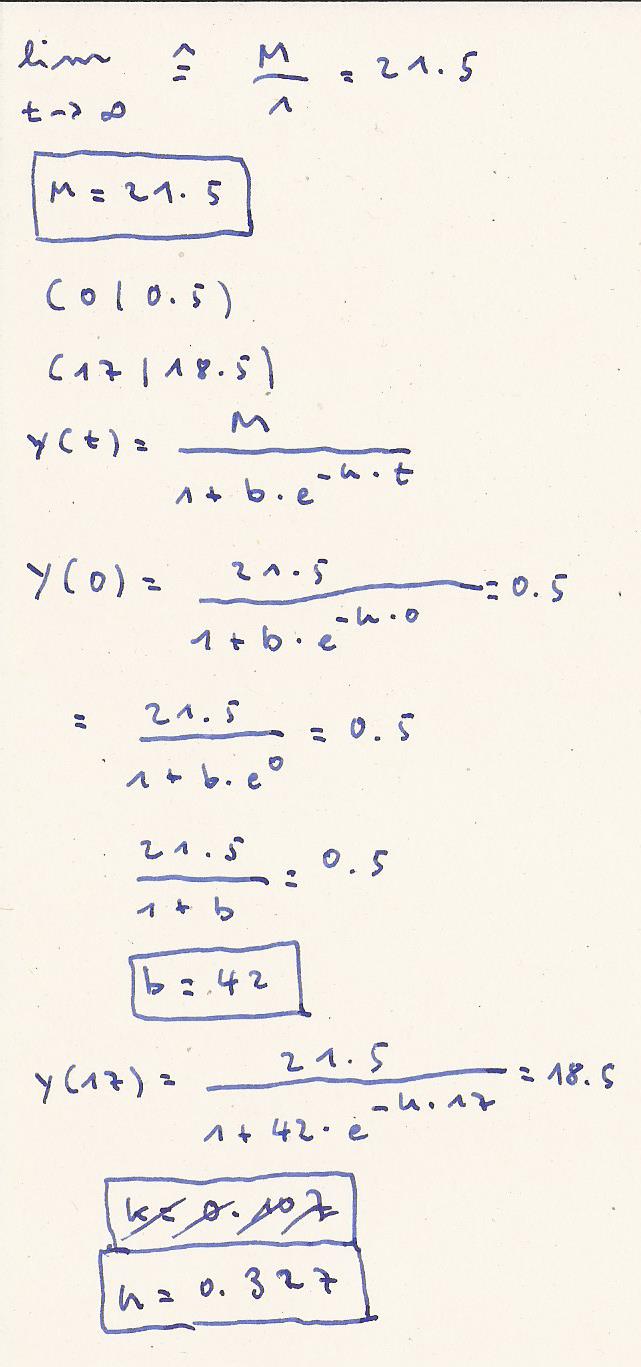 lim ≙ M/1 = 21.5
t→∞
M = 21.5
(0 | 0.5)
(17 | 18.5)
y(t) = M / (1 + b · e^(-k · t))
y(0) = 21.5 / (1 + b · e^(-k · 0)) = 0.5
= 21.5 / (1 + b · e^0) = 0.5
21.5 / (1 + b) = 0.5
b = 42
y(17) = 21.5 / (1 + 42 · e^(-k · 17)) = 18.5
k = 0.107
k = 0.327